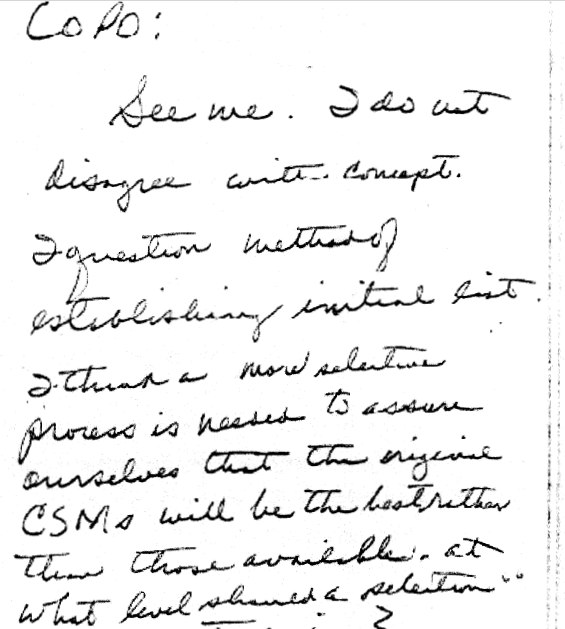 COPO:
See me. I do not
disagree with concept.
I question method of
establishing initial list.
I think a more selective
process is needed to assure
ourselves that the original
CSMs will be the best rather
than those available. at
what level should a selection